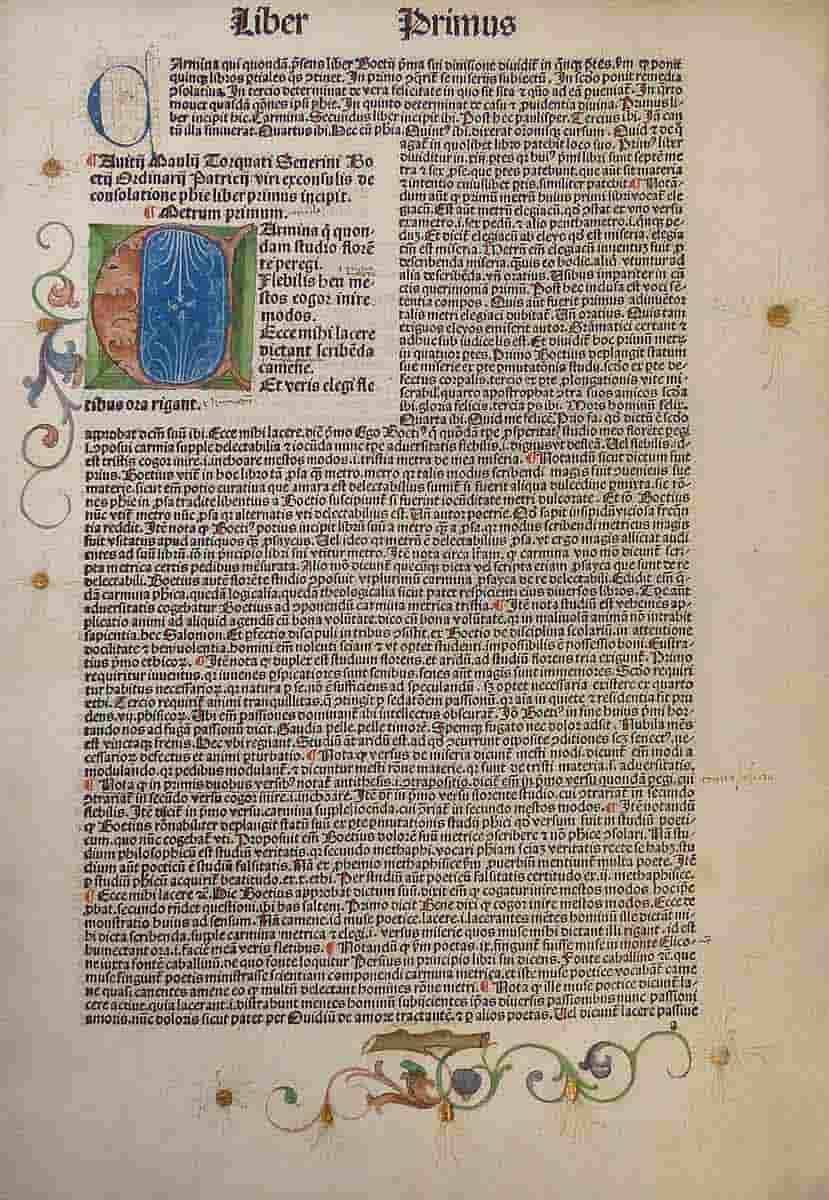 Liber Primus
Armina qui quondā p̄sens liber Boetij p̄ma sui diuisione diuidit̄ in qnq; ptes, ponit
quinq; libros ptiales qs ꝯtinet. In primo se miserijs subiectū. In scdo ponit remedia
ꝯsolatiua. In tercio determinat de vera felicitate in quo sit sita & quō ad eā pueniat̄. In q̄rto
mouet quasdā qōnes ipsi phie. In quinto determinat de casu & puidentia diuina. Primus li-
ber incipit hic. Carmina. Secundus liber incipit ibi. Post hec paulisper. Tercius ibi. Iā can
tū illa finiuerat. Quartus ibi. Hec cū phia. Quint⁹ ibi. dixerat orōnisq; cursum. Quid & de q̄
agat̄ in quolibet libro patebit loco suo. Prim⁹ liber
¶ Anitij Manlij Torquati Seuerini Bo
etij Ordinarij Patricij viri exconsulis de
consolatione phie liber primus incipit.
¶ Metrum primum.
Armina q̄ quon-
dam studio florē
te peregi.
Flebilis heu me-
stos cogor inire
modos.
Ecce mihi lacere
dictant scribēda
camene.
Et veris elegi fle
tibus ora rigant.
diuiditur in
tra & sex pse. que ptes patebunt. que aūt sit materia
& intentio cuiuslibet ptis. similiter patebit. ¶ Notā-
dum aūt ꝙ primū metrū huius primi libri vocat̄ ele
giacū. Est aūt metrū elegiacū. qd ꝯstat ex vno versu
exametro. i. sex pedū. & alio penthametro. i. qnq; pe-
dū. Et dicit̄ elegiacū ab eleyo qd est miseria. elegia
cū est miseria. Metrū em̄ elegiacū inuentū fuit p
describenda miseria. quis eo hodie. aliq vtuntur ad
alia describēda. vn̄ oratius. Uersibus impariter iunctis
querimonia primū. Post hec inclusa est voci sē-
tentia compos. Quis aūt fuerit primus adinuētor
talis metri elegiaci dubitat̄. Un̄ oratius. Quis tam
exiguos eleyos emiserit autor. Grāmatici certant &
adhuc sub iudice lis est. Et diuidit̄ hoc primū metrū
in quatuor ptes. Primo Boetius deplangit statum
sue miserie ex pte pmutatōnis studij. scdo ex pte de-
fectus corpalis. tercio ex pte plongationis vite mi-
serabil. quarto apostrophat ꝯtra suos amicos scdā
ibi. gloria felicis. tercia ps ibi. Mors hominū felix.
Quarta ibi. Quid me felicē. Primo facit qd dictū ē scdo
aprobat dcm̄ suū ibi. Ecce mihi lacere. dic̄ p̄mo Ego Boeti⁹ q̄ quōdā tpe psperitat⁹ studio meo florēte pegi
.i. ꝯposui carmia supple delectabilia & iocūda nunc tpe aduersitatis flebilis .i. dignus vt defleā. Uel flebilis. id
est tristis cogor inire .i. inchoare mestos modos .i. tristia metra de mea miseria. ¶ Notandū sicut dictum fuit
prius. Boetius vtit̄ in hoc libro tā psa q̄ metro. metro qr talis modus scribendi magis fuit ꝯueniens sue
materie. sicut em̄ potio curatiua que amara est delectabilius sumit̄ si fuerit aliqua dulcedine pmixta. sic rō-
nes phie in psa tradite libentius a Boetio suscipiunt̄ si fuerint iocūditate metri dulcorate. Et iō Boetius
nūc vtit̄ metro nūc psa qr alternatis vti delectabilius est. Un̄ autor poetrie. Qd sapit insipidū viciosa frequē
tia reddit. Itē nota ꝙ Boeti⁹ potius incipit librū suū a metro q̄ a psa. qr modus scribendi metricus magis
fuit vsitatus apud antiquos q̄ psaycus. Uel ideo qr metrū ē delectabilius psa. vt ergo magis alliciat audi
entes ad suū librū. iō in pncipio libri sui vtitur metro. Itē nota circa lr̄am. ꝙ carmina vno mō dicunt̄ scri-
pta metrica certis pedibus mēsurata. Alio mō dicunt̄ quecūq; dicta vel scripta etiam psayca que sunt de re
delectabili. Boetius aūt florēte studio ꝯposuit vtplurimū carmina psayca de re delectabili. Edidit em̄ q̄-
dā carmina phica. quedā logicalia. quedā theologicalia sicut patet respicienti eius diuersos libros. Tpe aūt
aduersitatis cogebatur Boetius ad ꝯponendū carmina metrica tristia. ¶ Itē nota studiū est vehemēs ap-
plicatio animi ad aliquid agendū cū bona volūtate. dico cū bona volūtate. qr in maliuolā animā nō intrabit
sapientia. hec Salomon. Et pfectio discipuli in tribus ꝯsistit. ex Boetio de disciplina scolariū. in attentione
docilitate & beniuolentia. hominī em̄ nolenti sciam & vt optet studenti impossibilis ē possessio boni. Eustra-
tius pmo ethicor̄. ¶ Itē nota ꝙ duplex est studium florens. et aridū. ad studiū florens tria exigunt̄. Primo
requiritur iuuentus. qr iuuenes pspicatiores sunt senibus. senes aūt magis sunt immemores. Secdo requiri
tur habitus necessarior̄. qr natura p se. nō ē sufficiens ad speculandū. sꝫ optet necessaria existere ex quarto
ethi. Tercio requirit̄ animi tranquillitas. q̄ ꝯtingit p sedatōem passionū. qr aīa in quiete & residentia fit pru
dens. vij. phisicor̄. Ubi em̄ passiones dominant̄ ibi intellectus obscurat̄. Iō Boeti⁹ in fine huius pmi hor-
tando nos ad fugā passionū dicit. Gaudia pelle. pelle timorē. Spemq; fugato nec dolor adsit. Nubila mēs
est vinctaq; frenis. Hec vbi regnant. Studiū aūt aridū est. ad qd ꝯcurrunt opposite ꝯditiones scꝫ senect⁹. ne-
cessarior̄ defectus et animi pturbatio. ¶ Nota ꝙ versus de miseria dicunt̄ mesti modi. dicunt̄ em̄ modi a
modulando. qr pedibus modulant̄. & dicuntur mesti rōne materie. qr sunt de tristi materia .s. aduersitatis.
¶ Nota ꝙ in primis duobus versib⁹ notat̄ antithesis .i. ꝯtrapositio. dicit̄ em̄ in pmo versu quondā pegi. cui
ꝯtrariat̄ in secūdo versu cogor inire .i. inchoare. Itē dr̄ in pmo versu florente studio. cui ꝯtrariat̄ in secundo
flebilis. Itē dicit̄ in pmo versu. carmina supple iocūda. cui ꝯriat̄ in secundo mestos modos. ¶ Itē notandū
ꝙ Boetius rōnabiliter deplangit statū suū ex pte pmutationis studij phici qd versum fuit in studiū poeti-
cum. quo nūc cogebat̄ vti. Proposuit em̄ Boetius dolorē suū metrice ꝯscribere & nō phice ꝯsolari. Nā stu-
dium philosophicū est studiū veritatis. qr secundo methaphi. vocari phiam sciaꝫ veritatis recte se habꝫ. stu
dium aūt poeticū ē studiū falsitatis. Nā ex phemio methaphisice fm puerbiū mentiunt̄ multa poete. Itē
p studiū phicū acquirit̄ beatitudo. ex .x. ethi. Per studiū aūt poeticū falsitatis certitudo ex .ij. methaphisice.
¶ Ecce mihi lacere &c. Hic Boetius approbat dictum suū. dixit em̄ ꝙ cogatur inire mestos modos hoc ipse
pbat. secundo rn̄det questioni. ibi has saltem. Primo dicit Bene dixi ꝙ cogor inire mestos modos. Ecce de
monstratio huius ad sensum. Nā camene. id est muse poetice. lacere .i. lacerantes mētes hominū ille dictāt mi-
hi dicta scribenda. supple carmina metrica & elegi .i. versus miserie quos muse mihi dictant illi rigant. id est
humectant ora .i. faciē meā veris fletibus. ¶ Notandū ꝙ fm poetas .ix. fingunt̄ fuisse muse in monte Elico-
ne iuxta fontē caballinū. de quo fonte loquitur Persius in principio libri sui dicens. Fonte caballino &c. que
muse fingunt̄ poetis ministrasse scientiam componendi carmina metrica. et iste muse poetice vocabāt̄ came
ne quasi canentes amene eo ꝙ multū delectant homines rōne metri. ¶ Nota ꝙ ille muse poetice dicunt̄ la-
cere actiue. quia lacerant .i. distrahunt mentes hominū subijcientes ipsas diuersis passionibus nunc passioni
amoris. nūc doloris sicut patet per Ouidiū de amore tractantē. & p alios poetas. Uel dicunt̄ lacere passiue